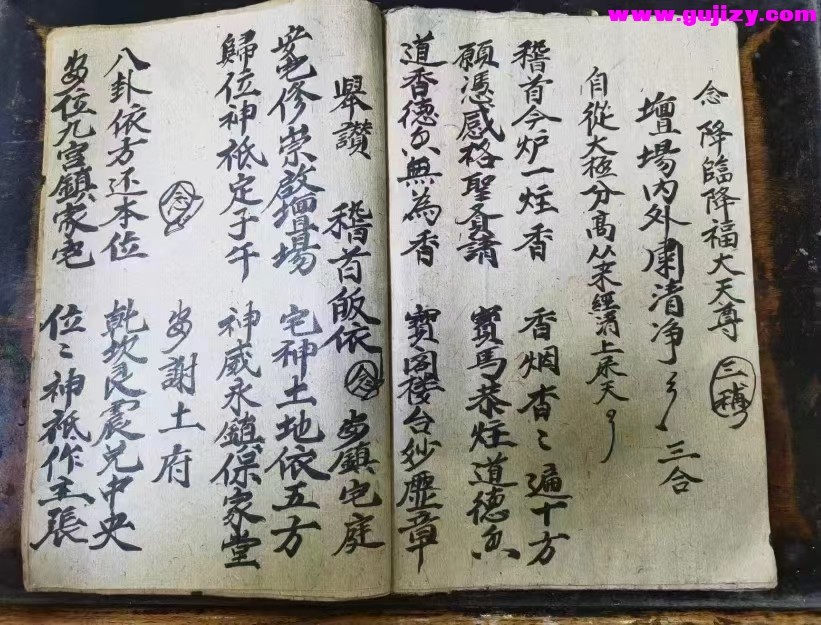 www.gujizy.com
念 降臨降福大天尊 三稱
壇場內外肅清净 三合
自從太極分高 從來經消上永天
稽首今炉一炷香 香烟香〻遍十方
願憑感格聖 請 寳馬恭炷道德
道香德 無為香 寳阁楼台妙 章
舉讚 稽首皈依 念 安鎮宅庭
安宅修崇啟壇場 宅神土地依五方
歸位神祇定子午 神威永鎮保家堂
念 安謝土府
八卦依方还本位 乾坎艮震兌中央
安位九宫鎮家宅 位〻神祗作主張